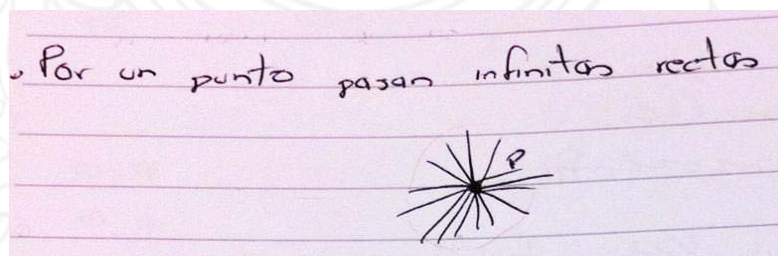 . Por un punto pasan infinitas rectas
P